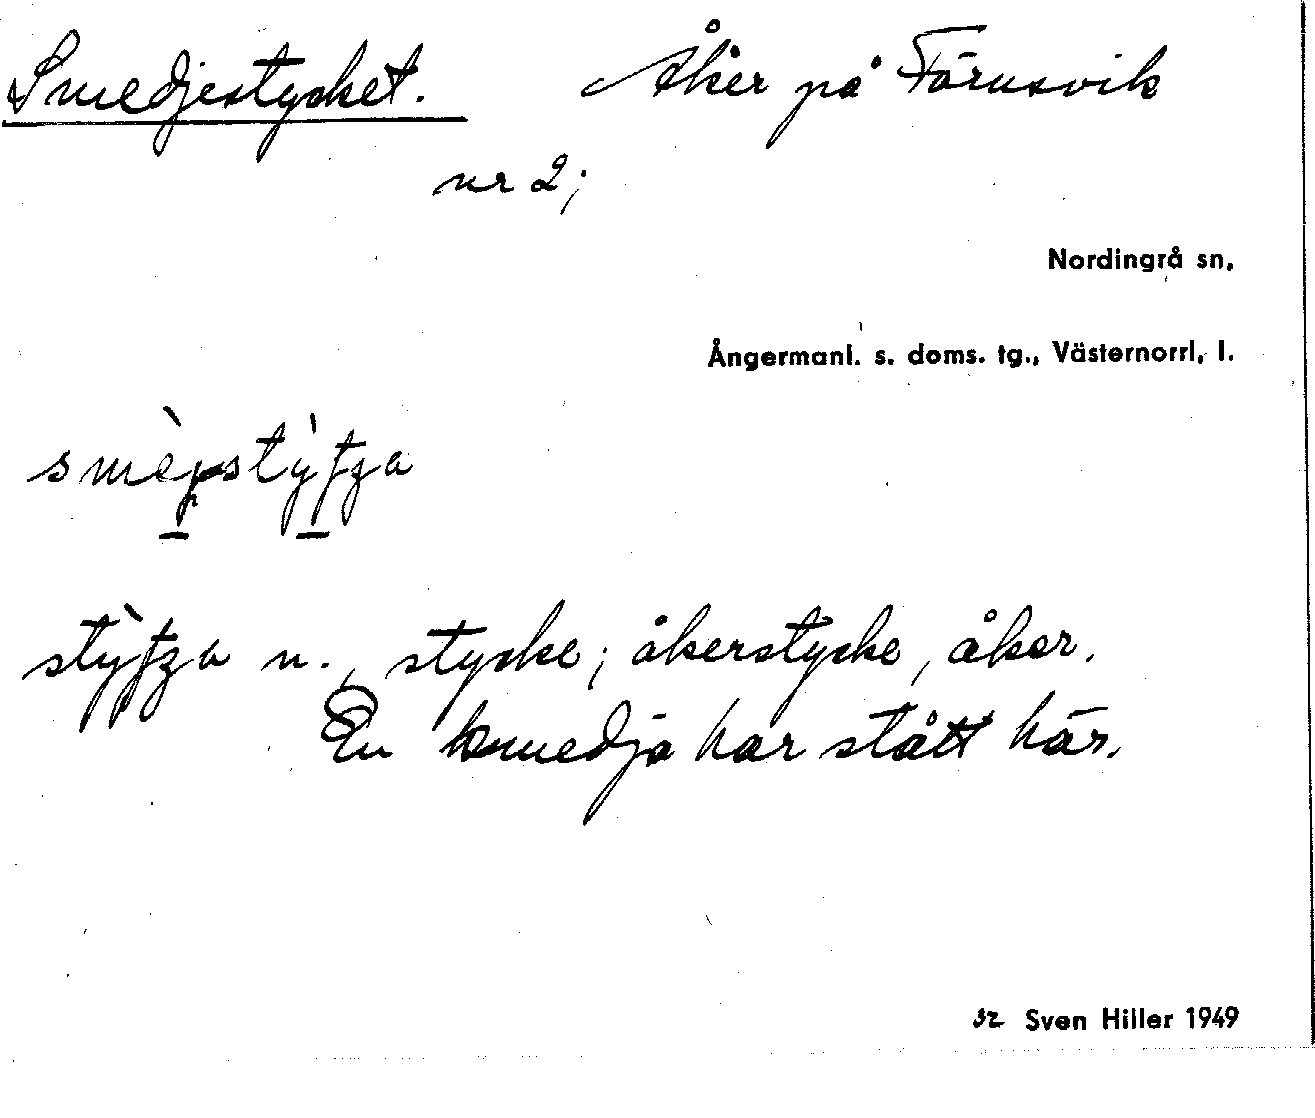 Smedjestycket. Åker på Färusvik
nr 2;
Nordingrå sn,
Ångermanl. s. doms. tg., Västernorrl, l.
stycke; åkerstycke, åker.
En smedja har stått här.
Sven Hiller 1949